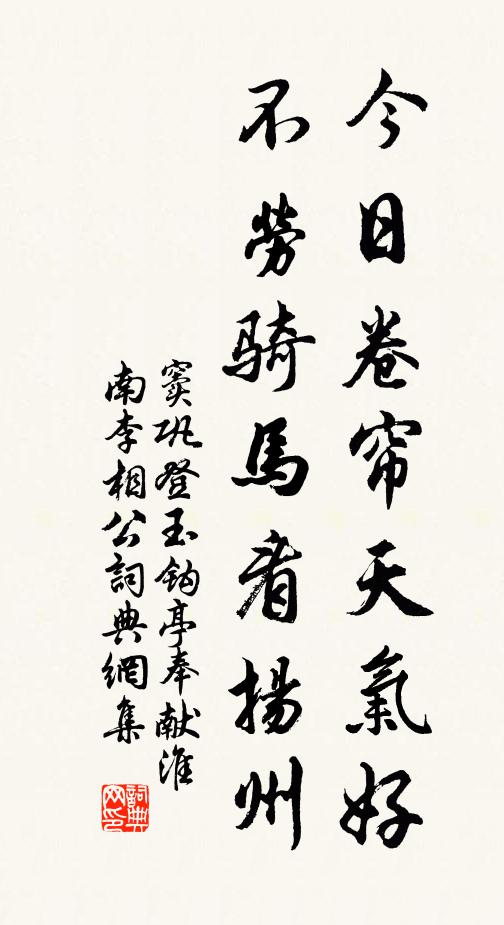 今日卷帘天氣好
不勞騎馬看揚州
窦巩登玉鈎亭奉献淮
南李相公詞典網集
詞典
网印